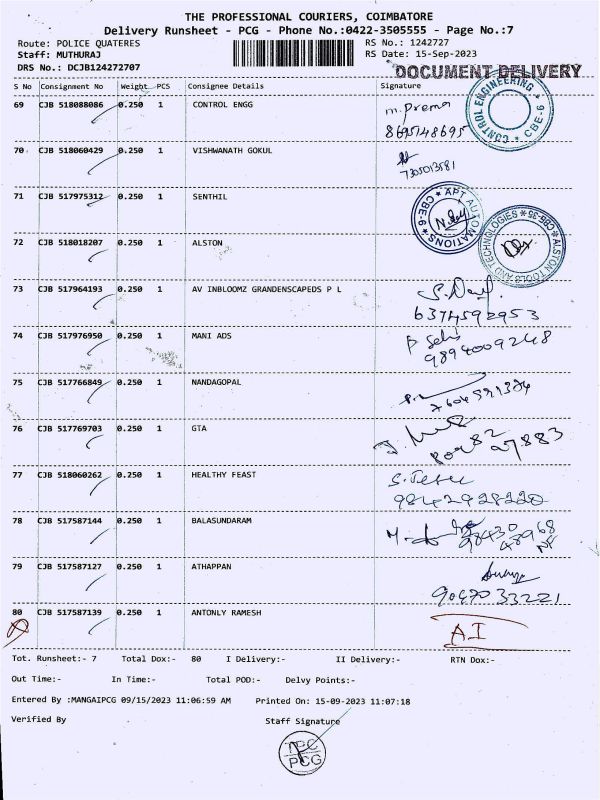 THE PROFESSIONAL COURIERS, COIMBATORE
Delivery Runsheet - PCG - Phone No.:0422-3505555 - Page No.:7
Route: POLICE QUATERES RS No.: 1242727
Staff: MUTHURAJ RS Date: 15-Sep-2023
DRS No.: DCJB124272707
DOCUMENT DELIVERY
S No Consignment No Weight PCS Consignee Details Signature
69 CJB 518088086 0.250 1 CONTROL ENGG m.prema
8695148695
CONTROL ENGINEERING * CBE-6 *
70 CJB 518060429 0.250 1 VISHWANATH GOKUL
7305013581
71 CJB 517975312 0.250 1 SENTHIL
* APT AUTOMATIONS * CBE-6
72 CJB 518018207 0.250 1 ALSTON
* ALSTON TOOLS AND TECHNOLOGIES * CBE-35
73 CJB 517964193 0.250 1 AV INBLOOMZ GRANDENSCAPEDS P L
6374592953
74 CJB 517976950 0.250 1 MANI ADS
9894009248
75 CJB 517766849 0.250 1 NANDAGOPAL
76 CJB 517769703 0.250 1 GTA
77 CJB 518060262 0.250 1 HEALTHY FEAST
78 CJB 517587144 0.250 1 BALASUNDARAM
79 CJB 517587127 0.250 1 ATHAPPAN
80 CJB 517587139 0.250 1 ANTONLY RAMESH
A.I
Tot. Runsheet:- 7 Total Dox:- 80 I Delivery:- II Delivery:- RTN Dox:-
Out Time:- In Time:- Total POD:- Delvy Points:-
Entered By :MANGAIPCG 09/15/2023 11:06:59 AM Printed On: 15-09-2023 11:07:18
Verified By Staff Signature
TPC
PCG